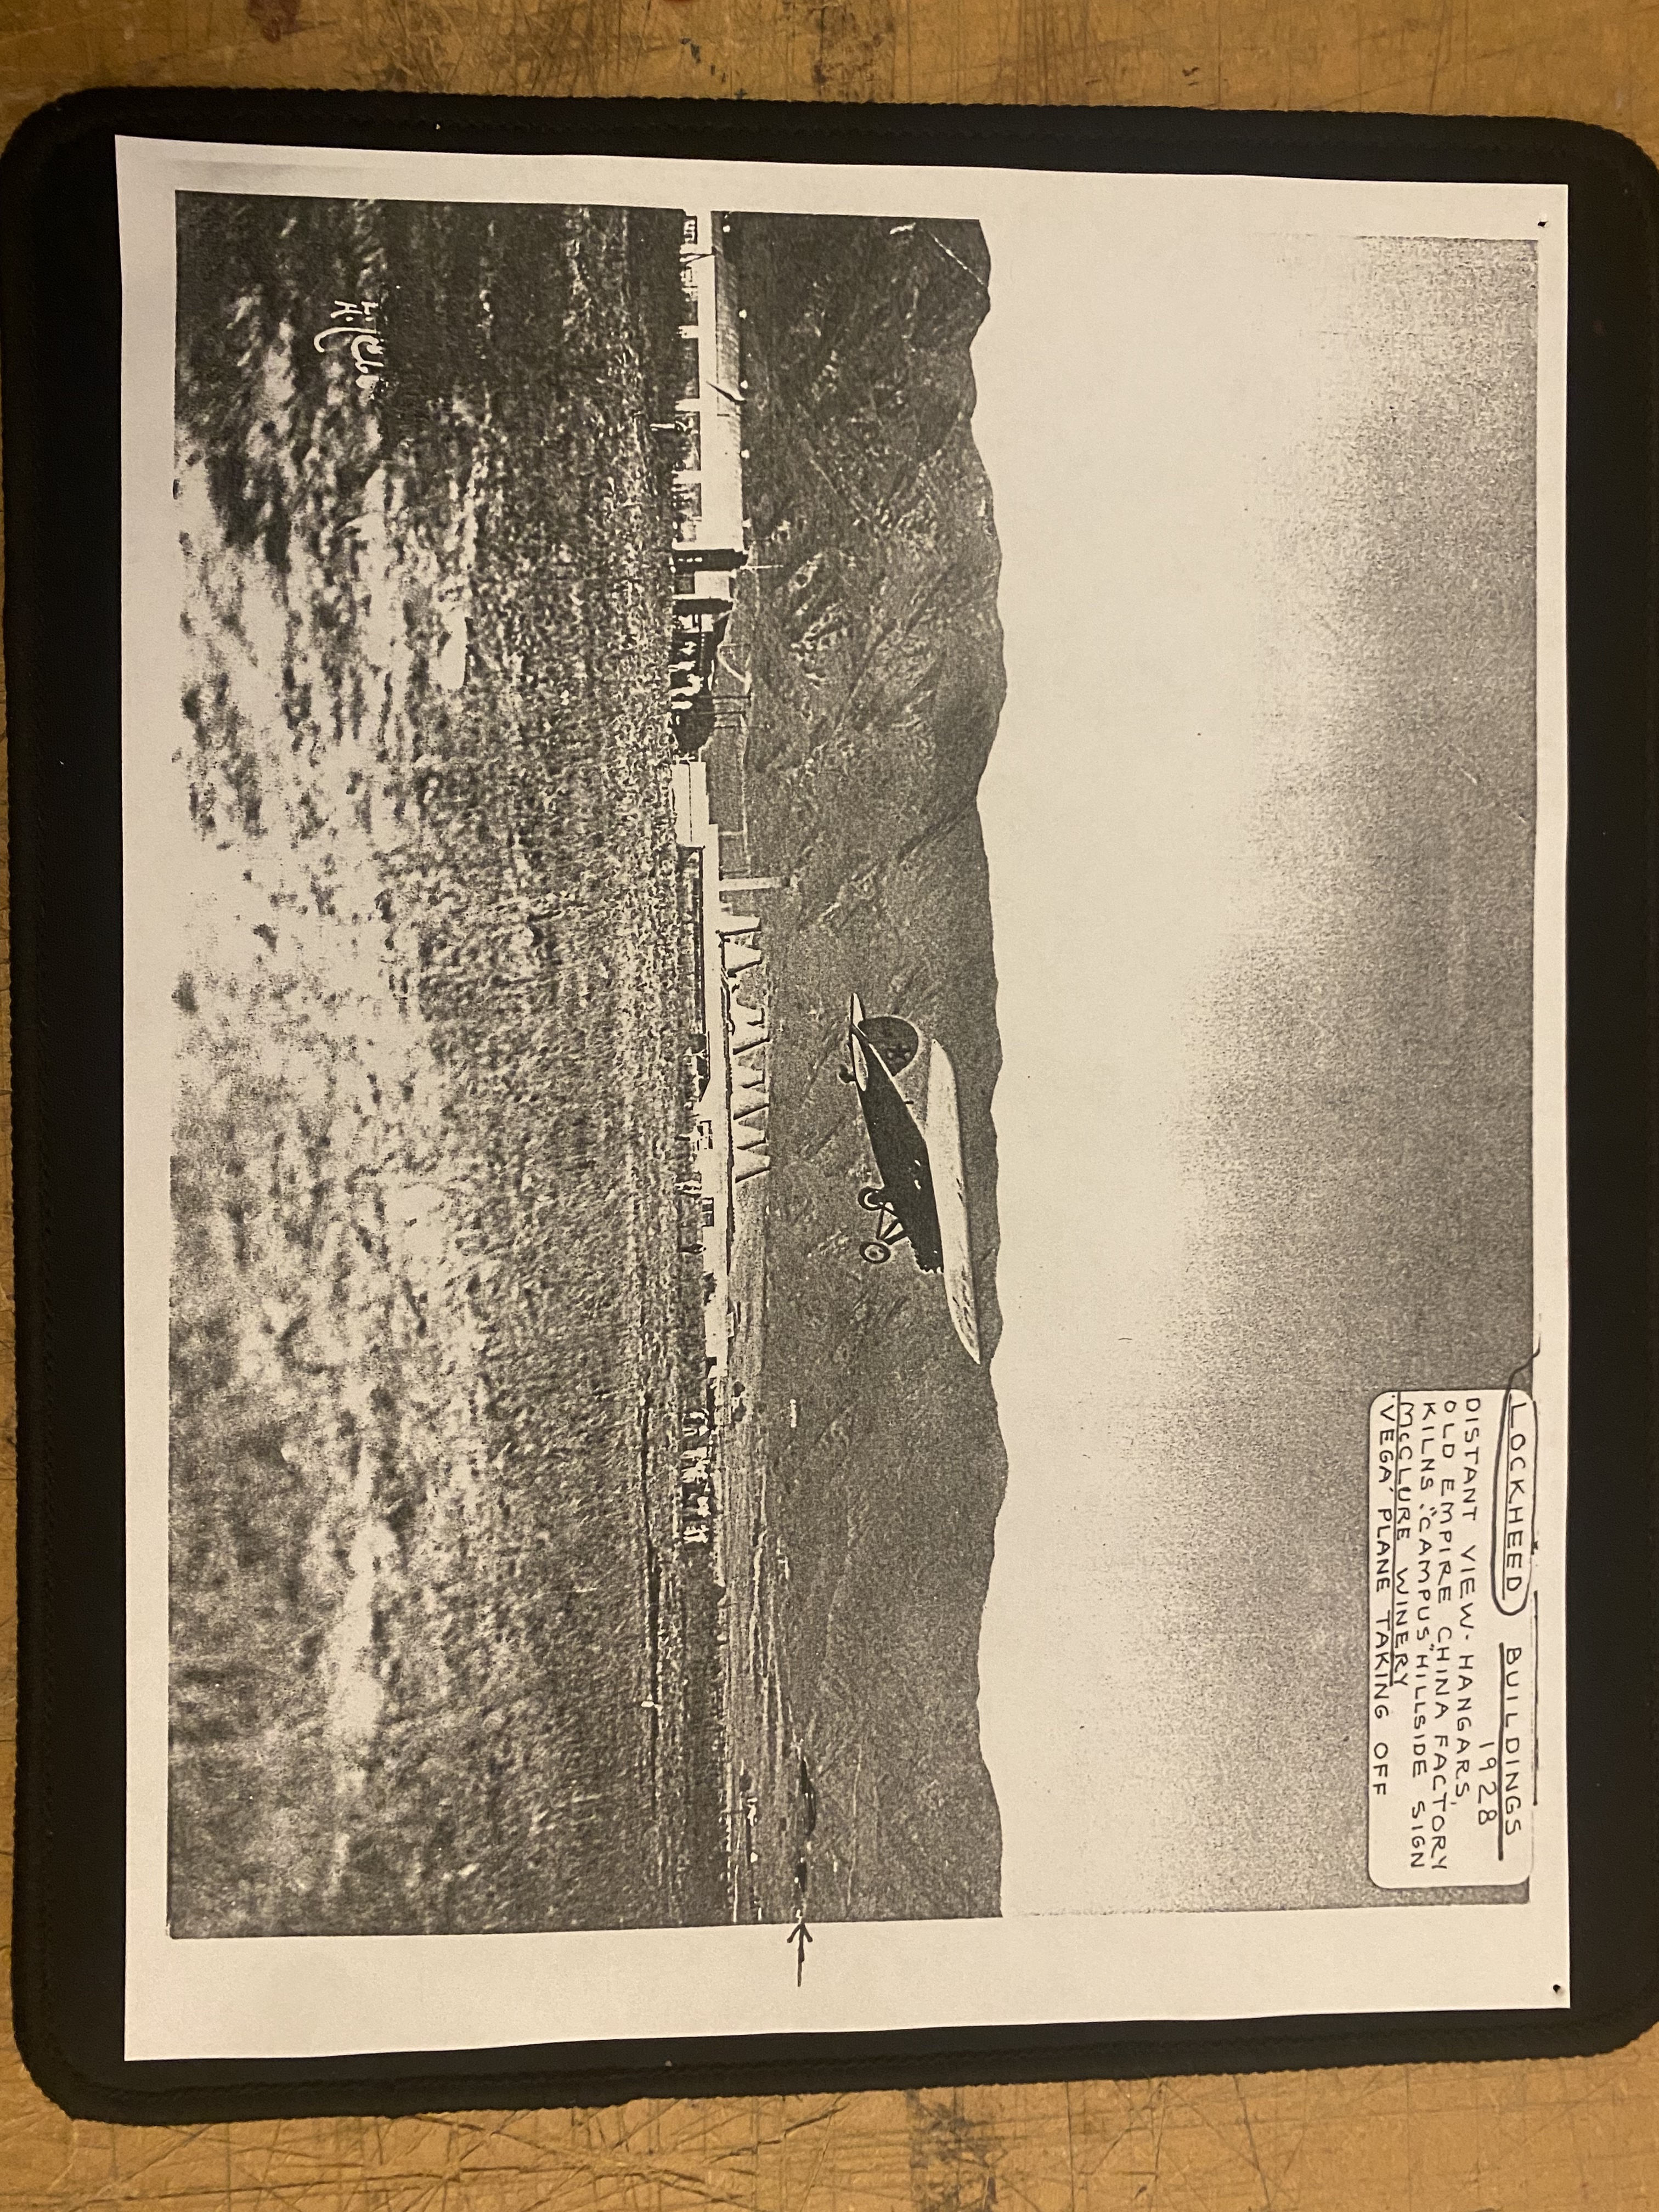 LOCKHEED BUILDINGS
1928
DISTANT VIEW- HANGARS,
OLD EMPIRE CHINA FACTORY
KILNS. "CAMPUS" HILLSIDE SIGN
McCLURE WINERY
'VEGA' PLANE TAKING OFF
CAMPUS